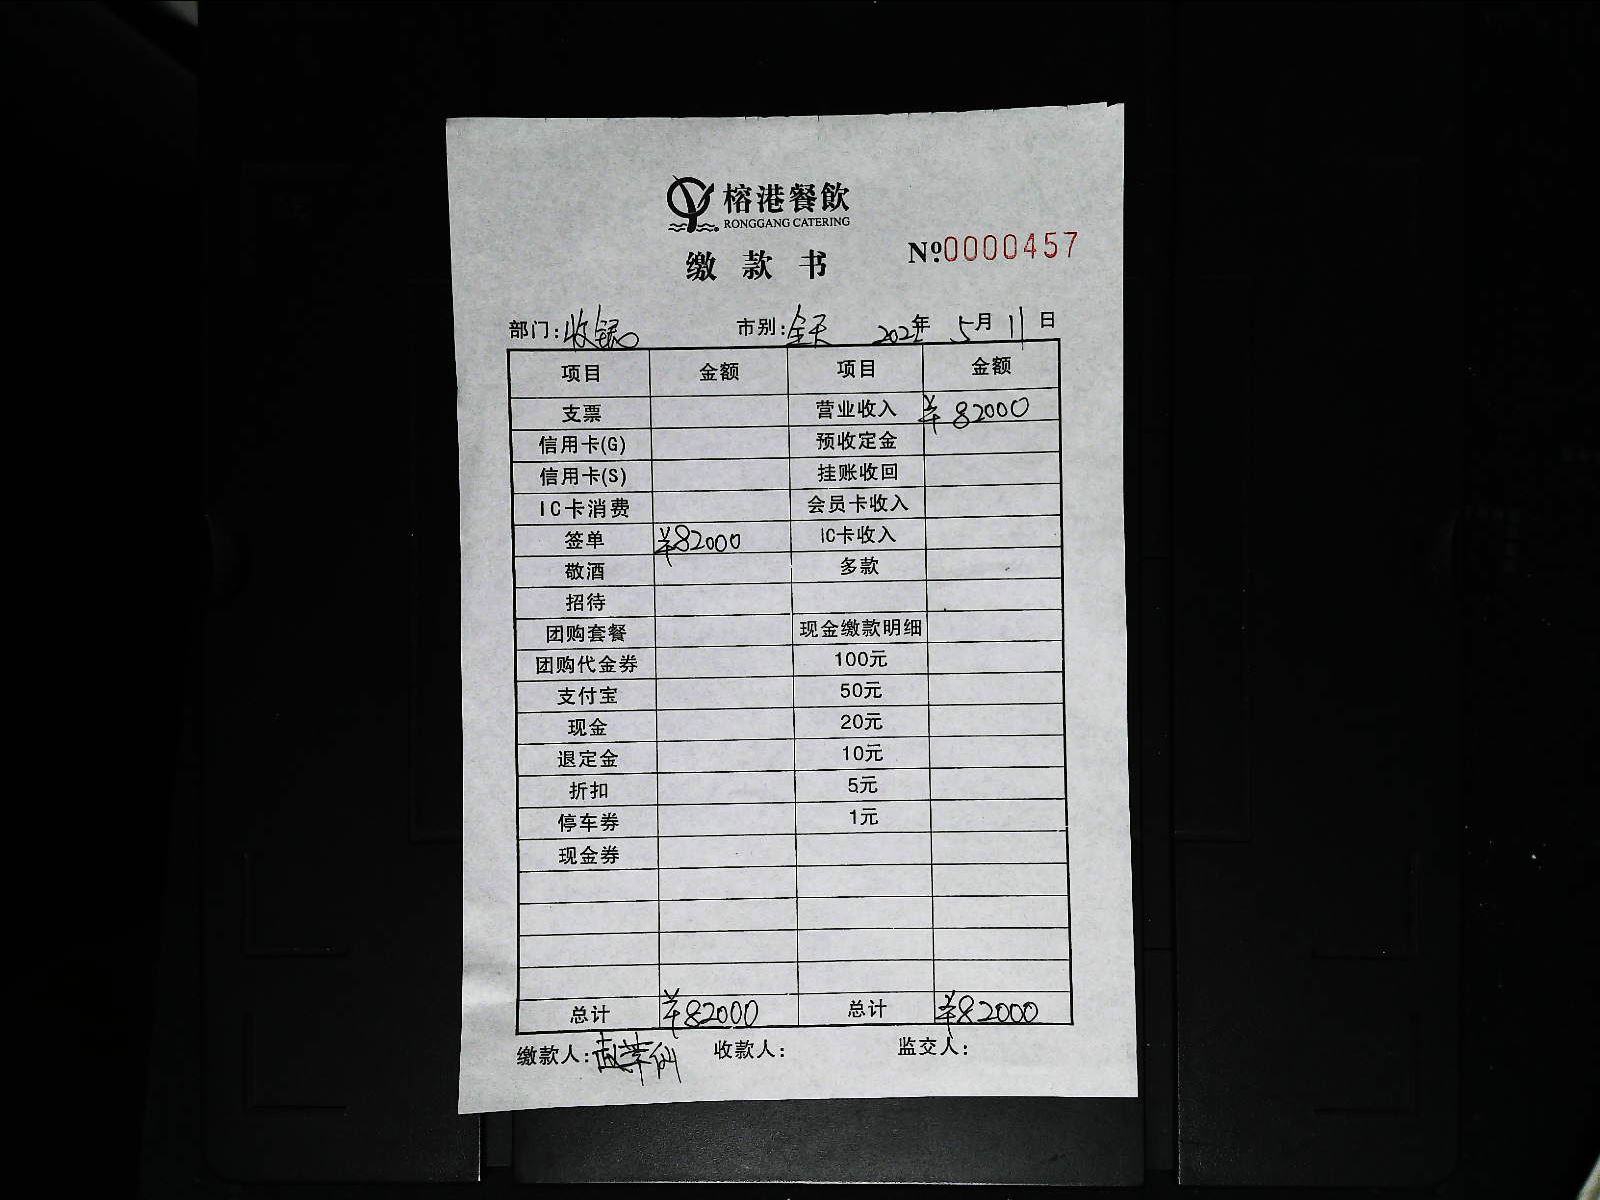 榕港餐飲
RONGGANG CATERING
缴款书
№0000457
部门:收银 市别:全天 202 年 5月 11日
项目 金额 项目 金额
支票 营业收入 ¥82000
信用卡(G) 预收定金
信用卡(S) 挂账收回
IC卡消费 会员卡收入
签单 ¥82000 IC卡收入
敬酒 多款
招待
团购套餐 现金缴款明细
团购代金券 100元
支付宝 50元
现金 20元
退定金 10元
折扣 5元
停车券 1元
现金券
总计 ¥82000 总计 ¥82000
缴款人: 收款人: 监交人: